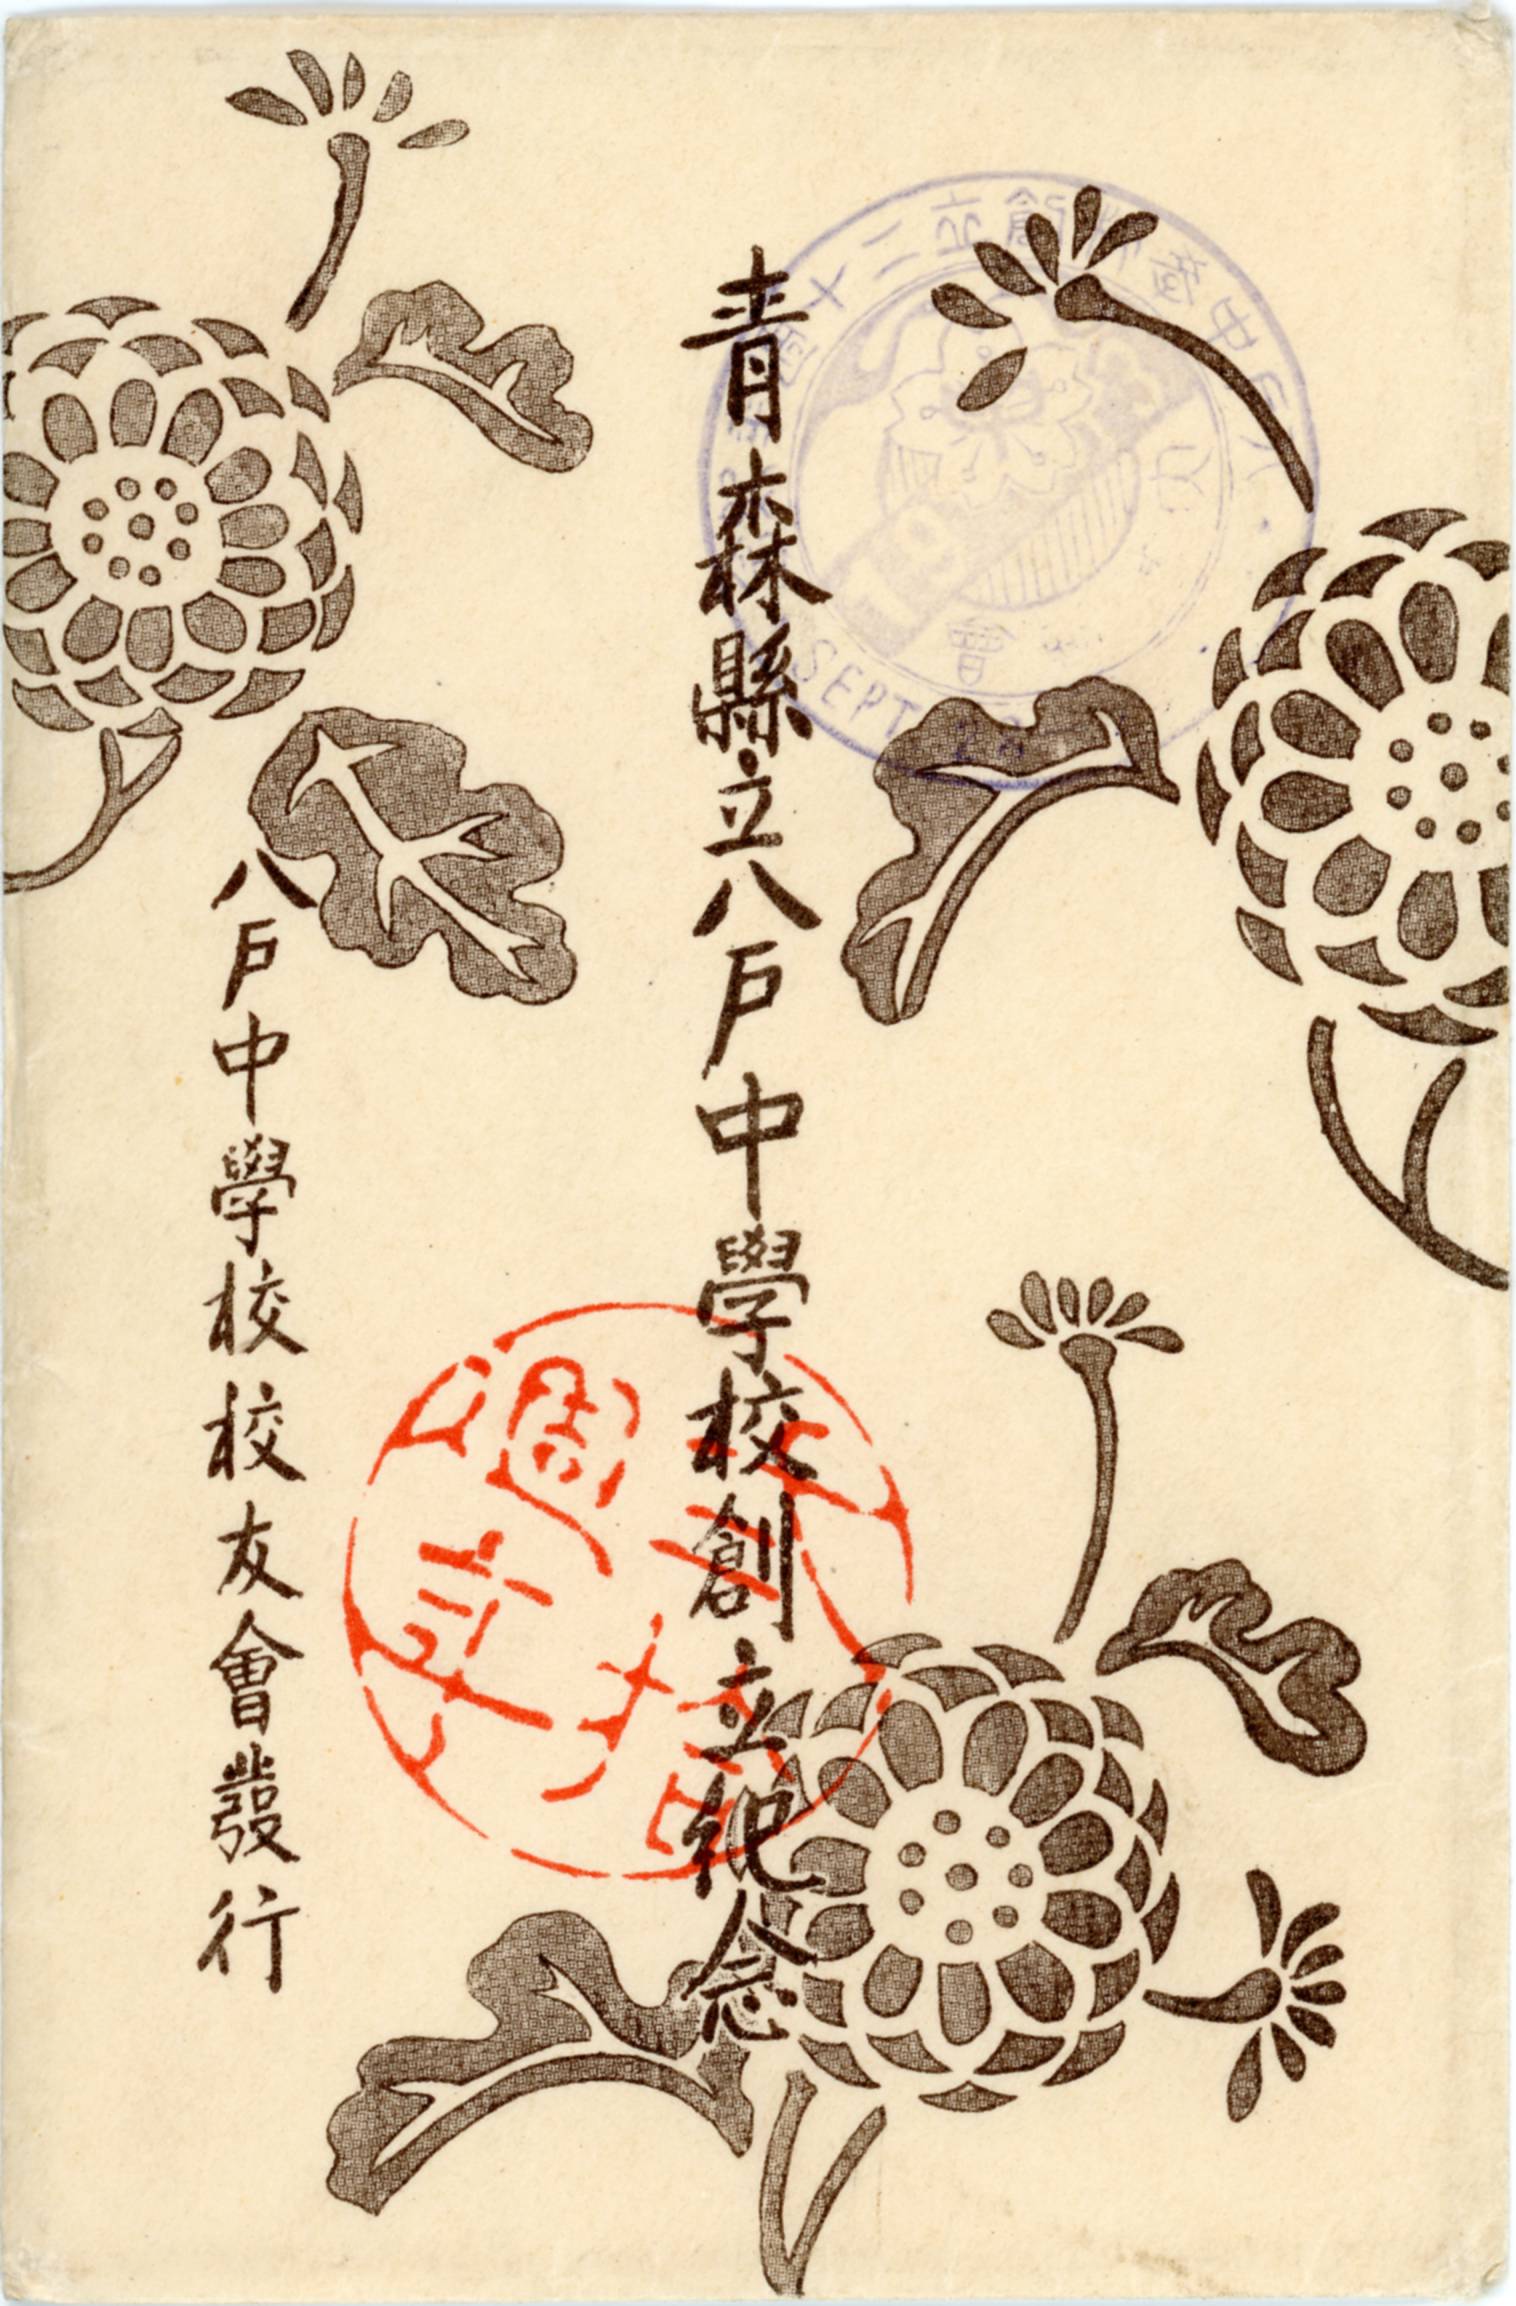 青森縣立八戸中學校創立紀念
八戸中學校校友會發行
週年
SEPT. 28